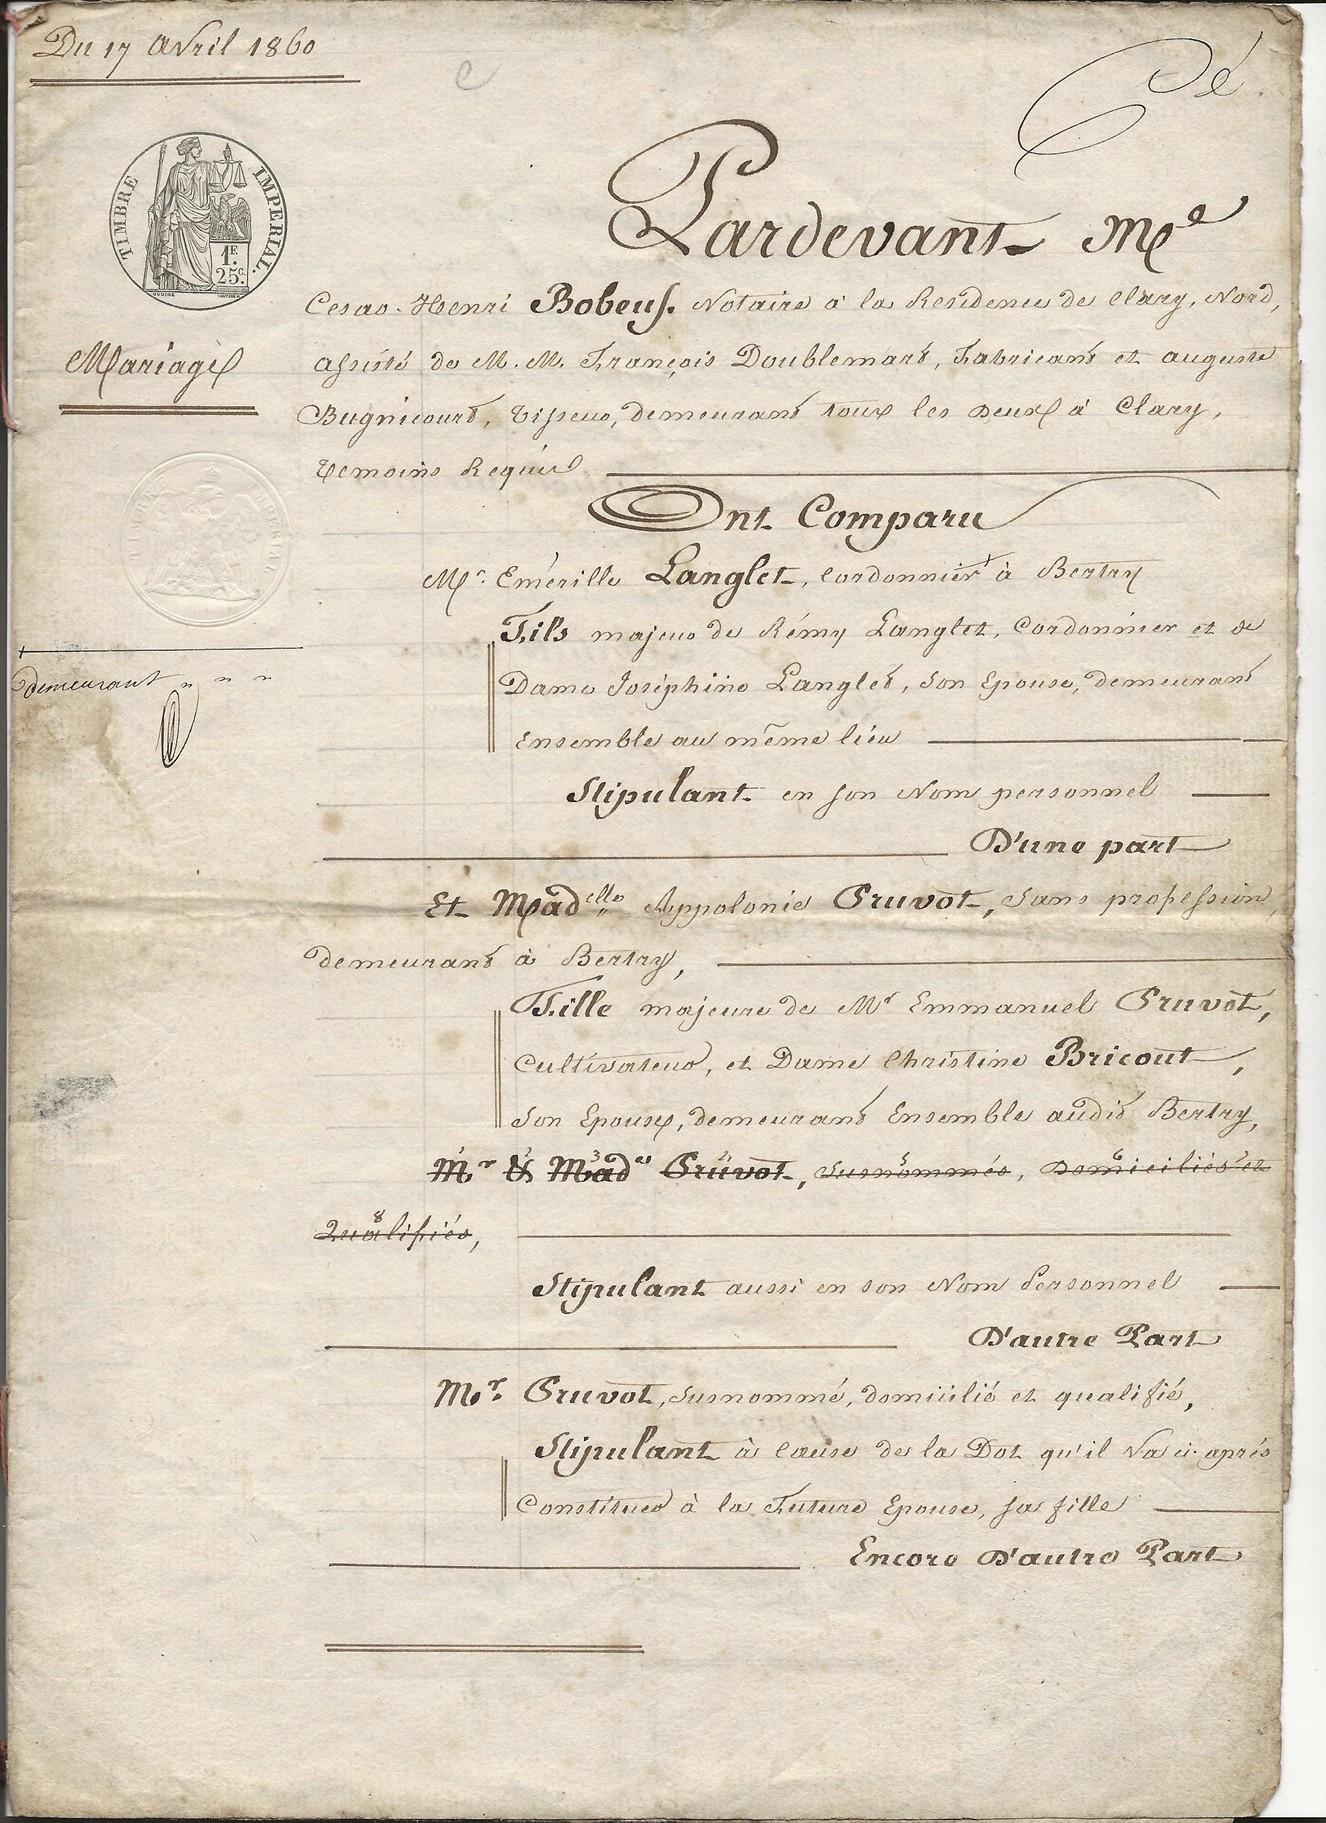 Du 17 Avril 1860
Cé.
TIMBRE IMPERIAL.
1F.
25c.
Pardevant Me
Cesar-Henri Bobeuf. Notaire à la Residence de Clary, Nord,
Mariage
assisté de M. M. François Doublemart, Fabricant et auguste
Bugnicourt, tisseur, demeurant tous les deux à Clary,
temoins Requis
Ont Comparu
Mr. Emérille Langlet, Cordonnier à Bertry
Fils majeur de Rémy Langlet, Cordonnier et de
demeurant " " "
Dame Joséphine Langlet, son Epouse, demeurant
Ensemble au même lieu
Stipulant en son Nom personnel
D'une part
Et Madelle Appolonie Pruvot, sans profession,
demeurant à Bertry,
Fille majeure de Mr Emmanuel Pruvot,
Cultivateur, et Dame Christine Bricout,
son Epouse, demeurant Ensemble audit Bertry,
Mr & Made Pruvot, susnommés, Domiciliés et
Qualifiés,
Stipulant aussi en son Nom Personnel
D'autre Part
Mr. Pruvot, susnommé, domicilié et qualifié,
Stipulant à Cause de la Dot qu'il va ci-après
Constituer à la Future Epouse, sa fille
Encore D'autre Part